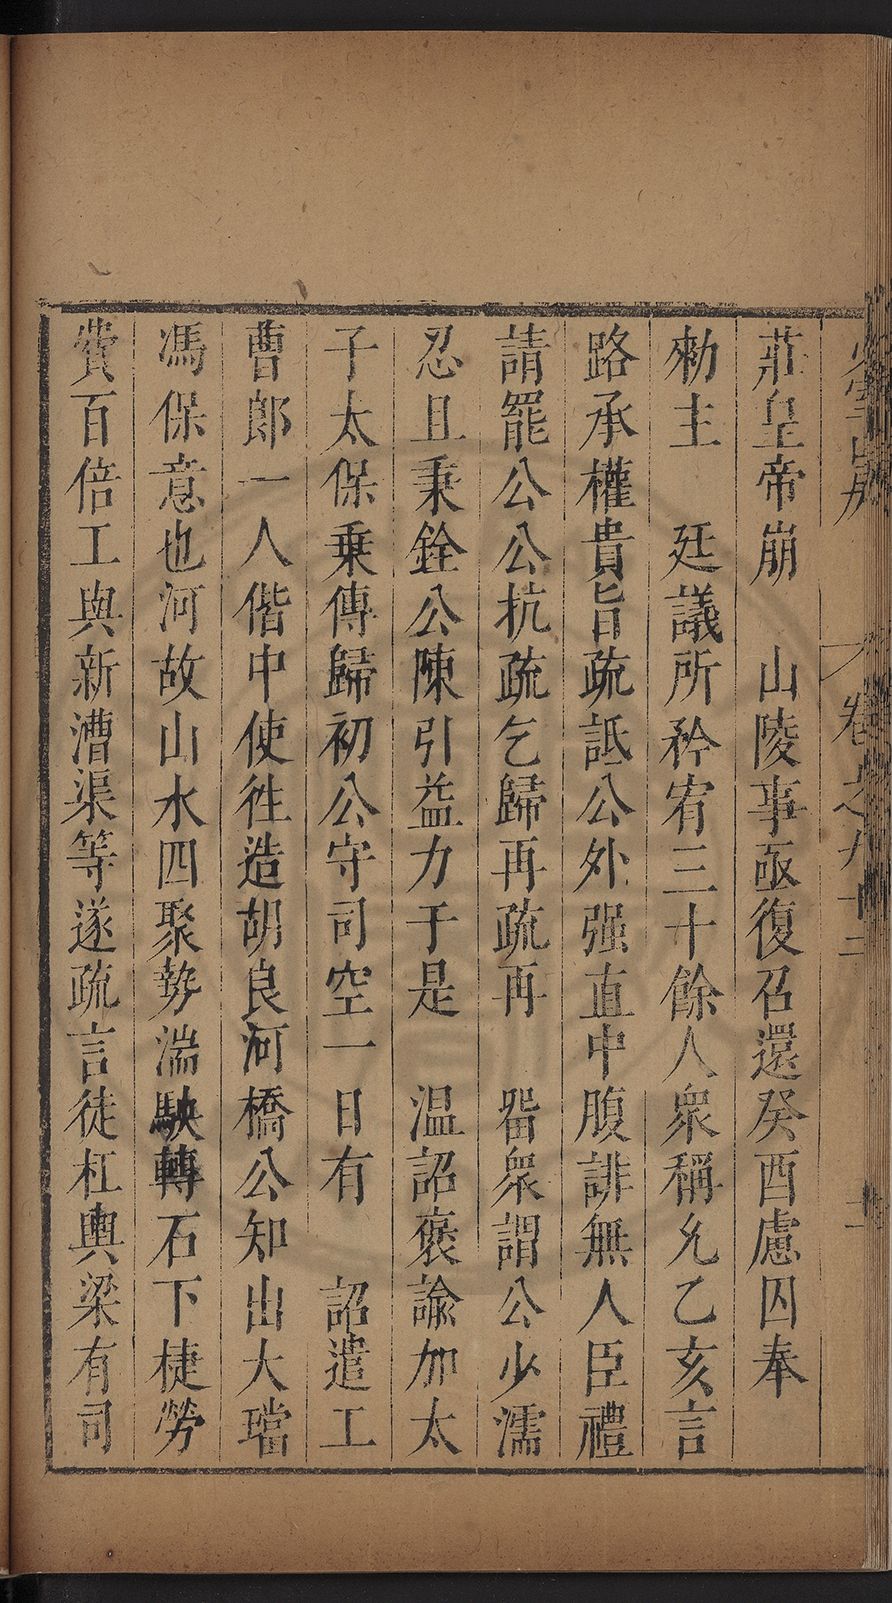 卷之九十二
莊皇帝崩　山陵事亟復召還癸酉慮囚奉
勑主　廷議所矜宥三十餘人衆稱允乙亥言
路承權貴旨疏詆公外强直中腹誹無人臣禮
請罷公公抗疏乞歸再疏再　畱衆謂公少濡
忍且秉銓公陳引益力于是　温詔褒諭加太
子太保乘傳歸初公守司空一日有　詔遣工
曹郎一人偕中使徃造胡良河橋公知出大璫
馮保意也河故山水四聚勢湍駛轉石下揵勞
費百倍工與新漕渠等遂疏言徒杠輿梁有司